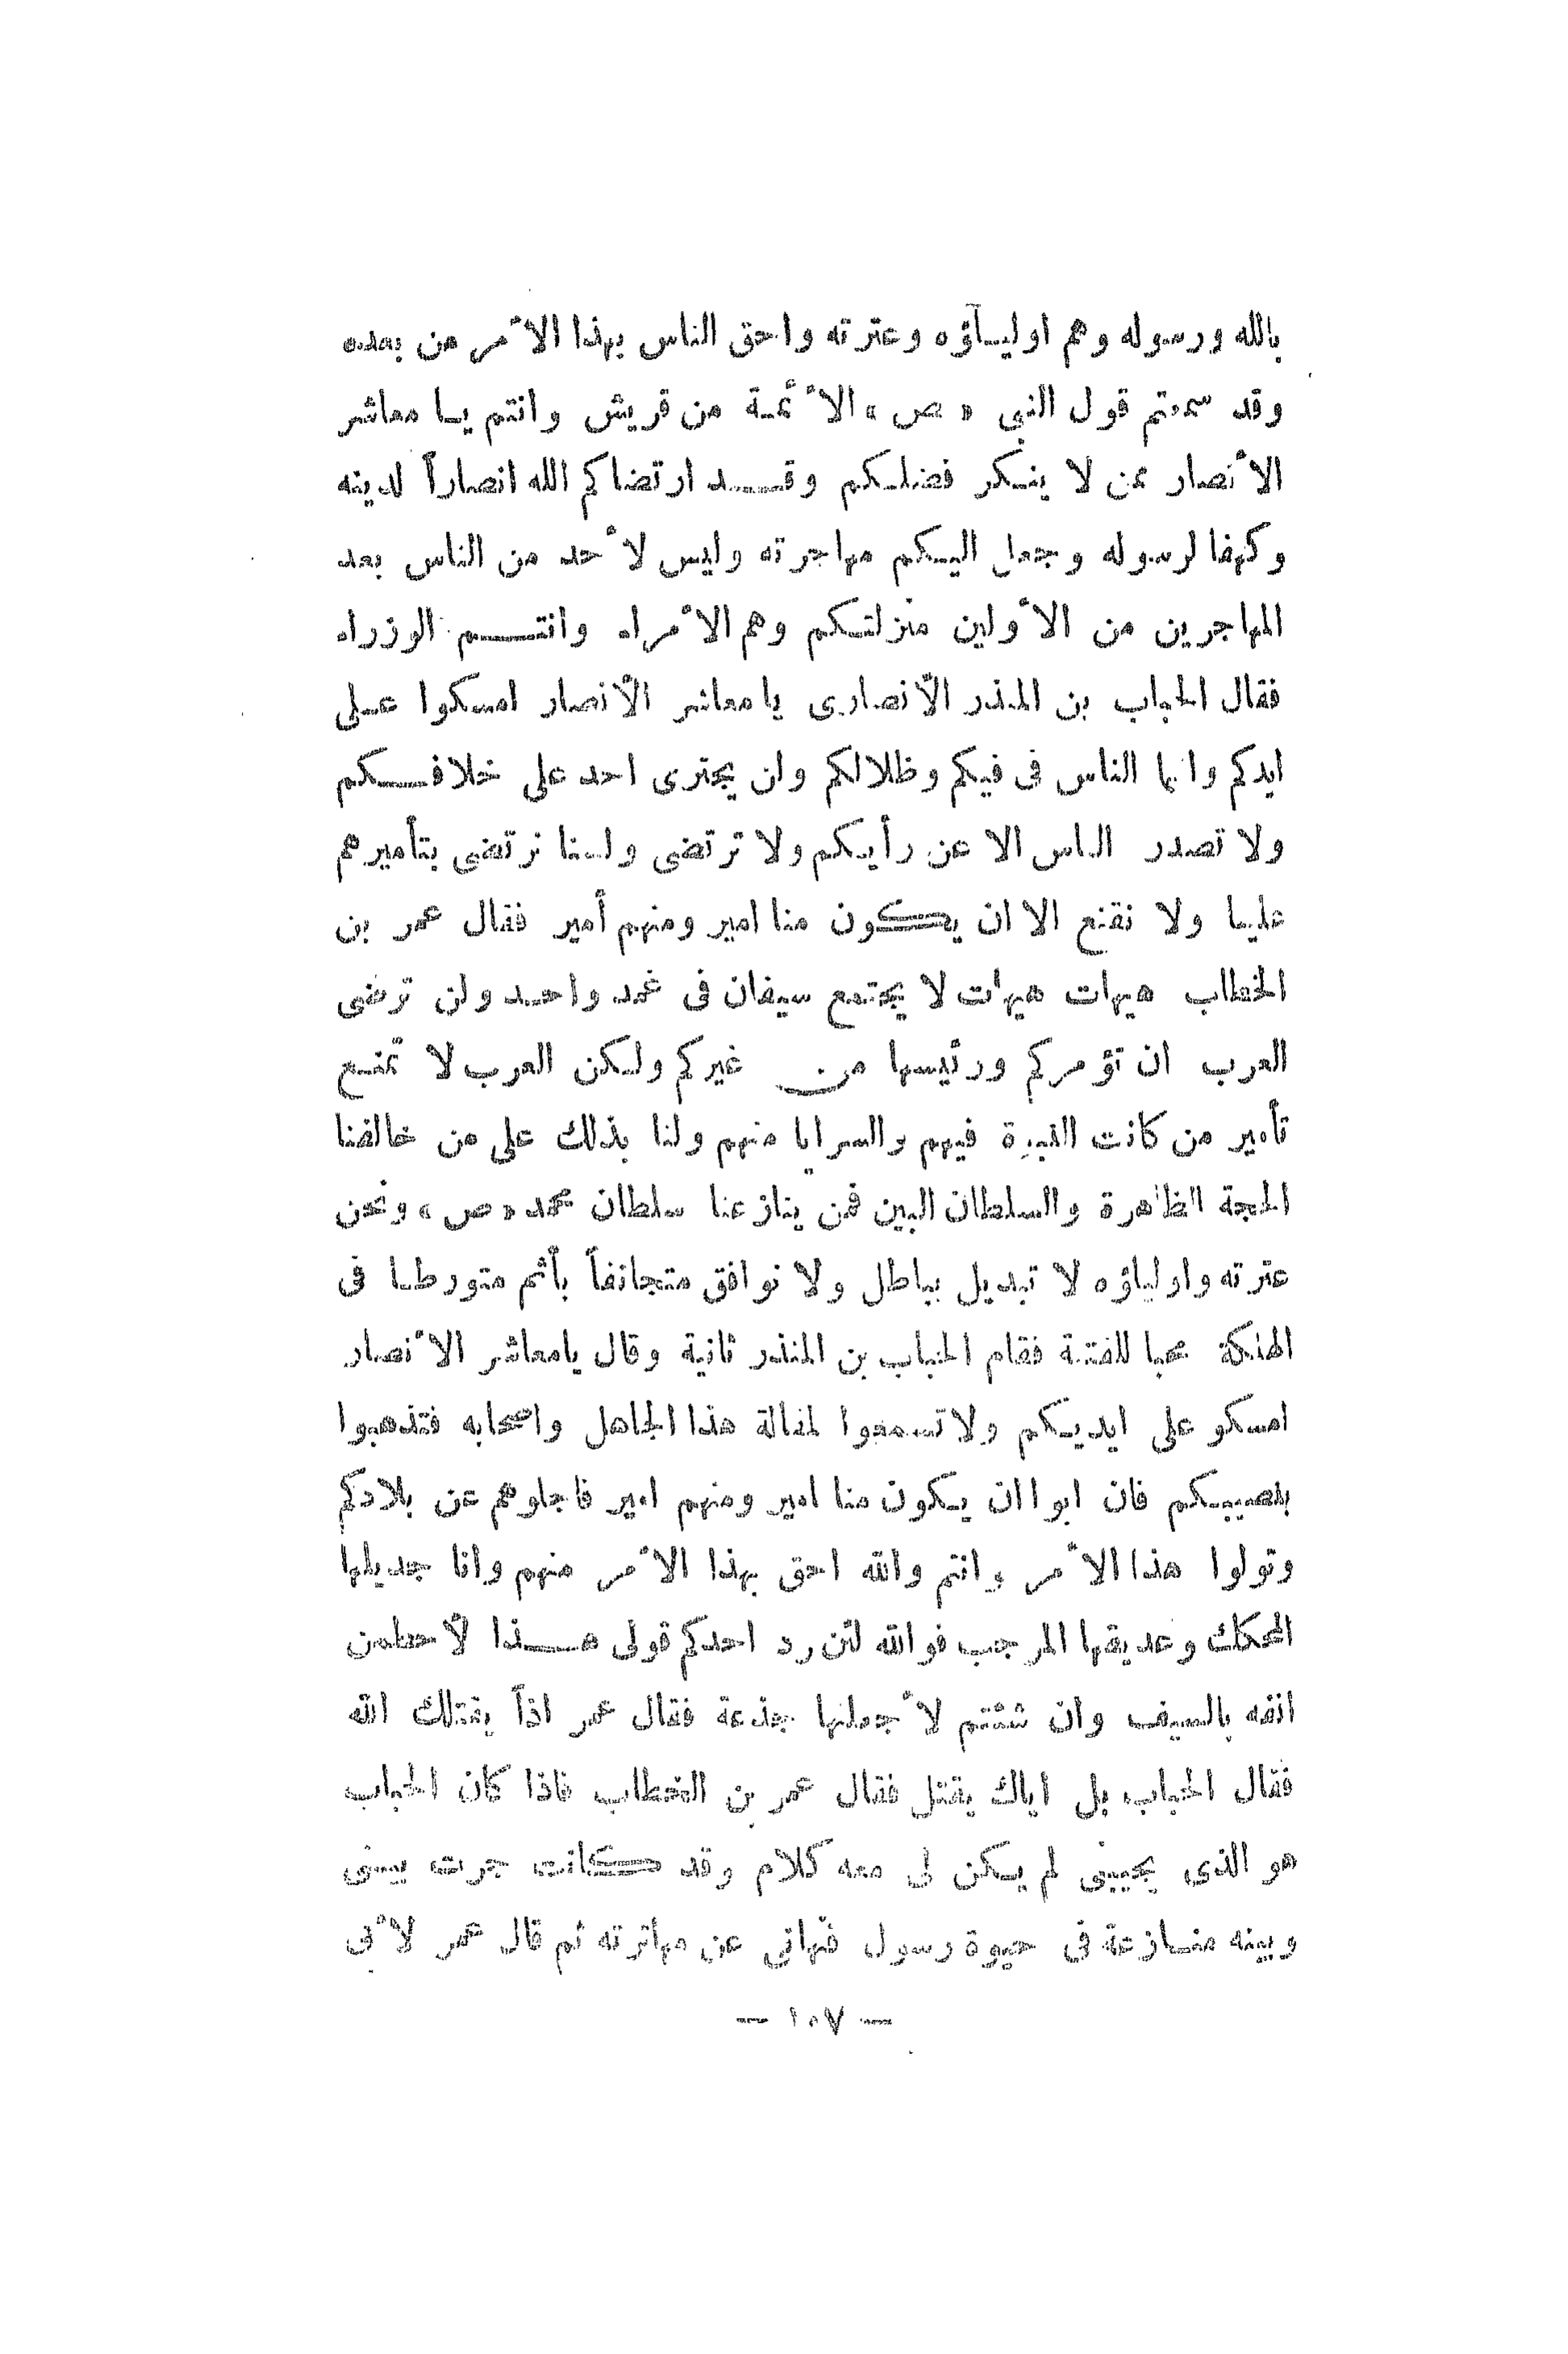 بالله ورسوله وهم اوليـآؤه وعترته واحق الناس بهذا الأمر من بعده
وقد سمعتم قول النبي « ص » الأئمـة من قريش وانتم يـا معاشر
الأنصار ممن لا ينـكر فضلـكم وقـــد ارتضاكم الله انصاراً لدينه
وكهفا لرسوله وجعل اليـكم مهاجرته وليس لأحد من الناس بعد
المهاجرين من الأولين منزلتـكم وهم الأمراء وانتـــم الوزراء
فقال الحباب بن المنذر الأنصارى يا معاشر الأنصار امسكوا عـلى
ايدكم وانما الناس فى فيكم وظلالكم وان يجترى احد على خلافــكم
ولا تصدر الناس الا عن رأيـكم ولا ترتضى ولسنا نرتضى بتأميرهم
علينا ولا نقنع الا ان يكون منا امير ومنهم أمير فقال عمر بن
الخطاب هيهات هيهات لا يجتمع سيفان فى غمد واحـد ولن ترضى
العرب ان تؤمركم ورئيسها من غيركم ولـكن العرب لا تمنـع
تأمير من كانت النبوة فيهم والسرايا منهم ولنا بذلك على من خالفنا
الحجة الظاهرة والسلطان البين فمن ينازعنا سلطان محمد « ص » ونحن
عترته واولياؤه لا تبديل بباطل ولا نوافق متجانفاً بأثم متورطـا فى
الهلكة محبا للفتنة فقام الحباب بن المنذر ثانية وقال يامعاشر الأنصار
امسكو على ايديـكم ولا تسمعوا لمقالة هذا الجاهل واصحابه فتذهبوا
بنصيبـكم فان ابوا ان يـكون منا امير ومنهم امير فاجلوهم عن بلادكم
وتولوا هذا الأمر وانتم والله احق بهذا الأمر منهم وانا جديلها
المحكك وعديقها المرجب فوالله لئن رد احدكم قولى هـــذا لأحطمن
انفه بالسيف وان شئتم لأجعلنها جذعة فقال عمر اذاً يقتلك الله
فقال الحباب بل اياك يقتل فقال عمر بن الخطاب فاذا كان الحباب
هو الذى يجيبنى لم يـكن لى معه كلام وقد كانت جرت بينى
وبينه منـازعة فى حيوة رسول فنهانى عن مهاترته ثم قال عمر لأبى
— ١٠٧ —